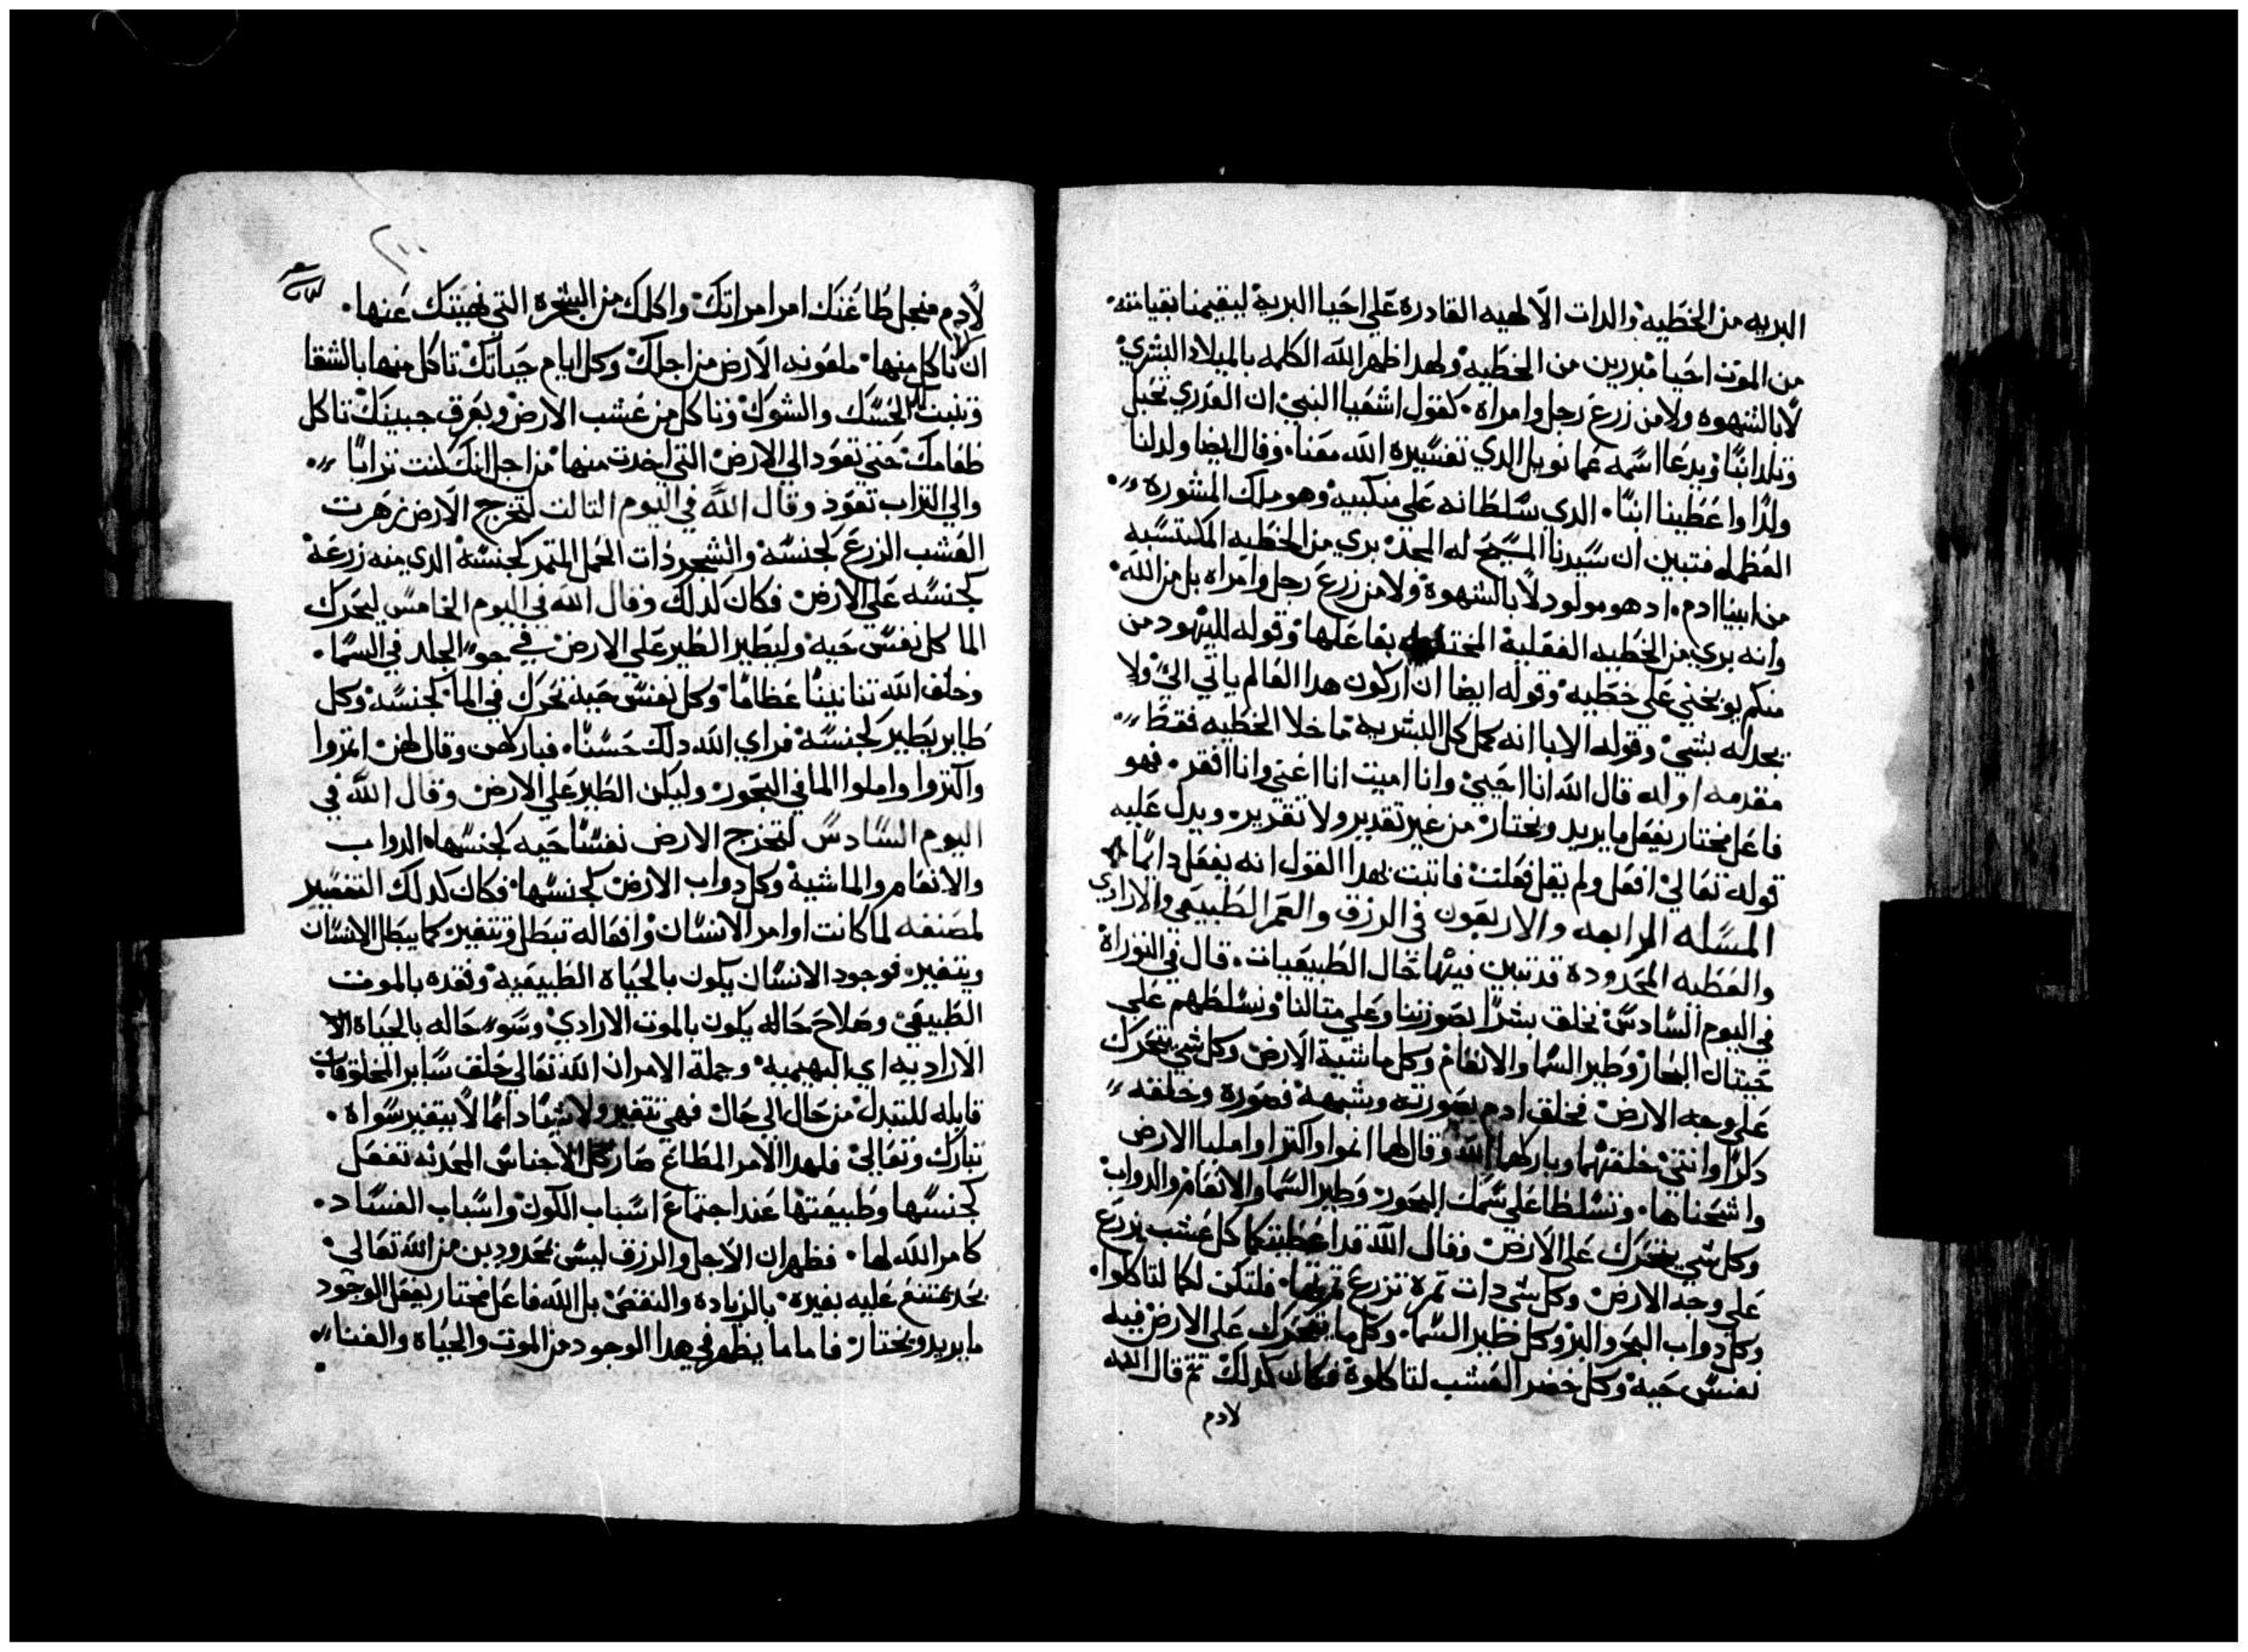 البريه من الخطيه والدات الالهيه القادرة على احيا البرية ليقيمنا بقيامته.
من الموت احيا مبررين من الخطيه ولهدا ظهر الله الكلمه بالميلاد البشري
لا بالشهوه ولا من زرع رجل وامراه. كقول اشعيا النبي ان العدري تحبل
وتلد ابنًا ويدعا اسمه عمانويل الدي تفسيره الله معنا. وقال ايضا ولد لنا
ولدًا واعطينا ابنًا. الدي سلطانه على منكبيه وهو ملك المشورة
العظمله فتبين ان سيدنا المسيح له المجد بري من الخطيه المكتسبه
من ابينا ادم. اد هو مولود لا بالشهوة ولا من زرع رجل وامراه بل من الله.
وانه بري من الخطيه الفعليه بفاعلها وقوله لليهود من
منكم يوبخني على خطيه وقوله ايضا ان اركون هدا العالم ياتي الي ولا
يجد له بشي وقوله الابا انه كمل كل البشريه ما خلا الخطيه فقط
مقدمه اوله قال الله انا احيي وانا اميت انا اغني وانا افقر. فهو
فاعل مختار يفعل ما يريد ويختار من غير تقدير ولا تقرير. ويدل عليه
قوله تعالي افعل ولم يقل فعلت فاتبت بهدا القول انه يفعل دايمًا
المسله الرابعه والاربعون في الرزق والعمر الطبيعي والارادي
والعطيه المحدودة قد تبين فيها حال الطبيعيات. قال في التوراة
في اليوم السادس نخلق بشرًا بصورتنا وعلى متالنا ونسلطهم على
حيتان البحار وطير السما والانعام وكل ماشية الارض وكل شي يتحرك
على وجه الارض فخلق ادم بصورته وشبهه فصوره وخلقه
دكرًا وانتي خلقتهما وباركهما الله وقال لهما انموا واكترا واملیا الارض
واشحناها. وتسلطا على سمك البحور وطير السما والانعام والدواب
وكل شي يتحرك على الارض وقال الله قد اعطيتكما كل عشب يزرع
على وجه الارض وكل شي دات تمرة تزرع تمرتها. فلتكن لكما لتاكلوا.
وكل دواب البحر والبر وكل طير السما. وكل ما يتحرك على الارض فيه
نفس حية وكل خضر العشب لتاكلوة فكان كدلك تم قال الله
لادم
٢٠٠
لادم منجل طاعتك امر امراتك واكلك من الشجره التي نهيتك عنها.
ان تاكل منها. ملعونه الارض من اجلك وكل ايام حياتك تاكل منها بالشقا
وتنبت لك الحسك والشوك وتاكل من عشب الارض وبعرق جبينك تاكل
طعامك حتي تعود الي الارض التي اخدت منها من اجل انك كنت ترابًا
والي التراب تعود وقال الله في اليوم التالت لتخرج الارض زهرت
العشب الزرع لجنسه والشجر دات الحمل المتمر لجنسة الدي منه زرعة
كجنسه على الارض فكان كدلك وقال الله في اليوم الخامس ليحرك
الما كل نفس حيه وليطير الطير على الارض في جو الجلد في السما.
وخلق الله تنانينًا عظامًا وكل نفس حيه تحرك في الما كجنسه وكل
طاير يطير كجنسة فراي الله دلك حسنًا. فباركهن وقال لهن اتمروا
واكتروا واملوا الما في البحور وليكن الطير على الارض وقال الله في
اليوم السادس لتخرج الارض نفسًا حيه كجنسها الدواب
والانعام والماشية وكل دواب الارض كجنسها فكان كدلك التفسير
لمصنفه لما كانت اوامر الانسان وافعاله تبطل وتتغير كما يبطل الانسان
ويتغير. فوجود الانسان يكون بالحياة الطبيعيه وفقده بالموت
الطبيعي وصلاح حاله يكون بالموت الارادي وسو حاله بالحياة الا
الاراديه اي البهيميه وجملة الامر ان الله تعالي خلق ساير المخلوقات
قابله للتبدل من حال الي حال فهي تتغير ولا شيًا دايمًا لا يتغير سواه.
تبارك وتعالي فلهدا الامر المطاع صار كل الاجناس المحدته تفعل
كجنسها وطبيعتها عند اجتماع اسباب الكون واسباب الفساد.
كامر الله لها. فظهر ان الاجل والرزق ليس محدودين من الله تعالي.
بحد يمتنع عليه بغيره بالزياده والنقص بل الله فاعل مختار يفعل الوجود
ما يريد ويختار فاما ما يظهر في هدا الوجود من الموت والحياة والغنا